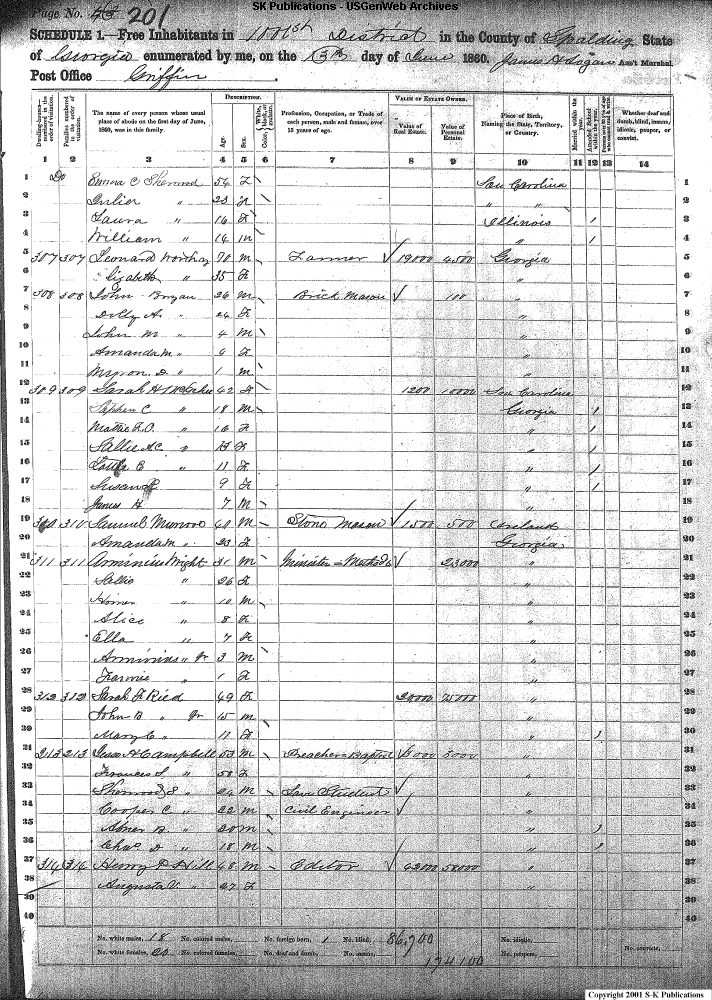 SK Publications - USGenWeb Archives
Page No. 201
SCHEDULE 1.—Free Inhabitants in 1001st District in the County of Spalding State
of Georgia enumerated by me, on the 13th day of June 1860. James Logan Ass't Marshal.
Post Office Griffin
Dwelling-houses—numbered in the order of visitation. Families numbered in the order of visitation. The name of every person whose usual place of abode on the first day of June, 1860, was in this family. DESCRIPTION. Age. Sex. Color, White, black, or mulatto. Profession, Occupation, or Trade of each person, male and female, over 15 years of age. VALUE OF ESTATE OWNED. Value of Real Estate. Value of Personal Estate. Place of Birth, Naming the State, Territory, or Country. Married within the year. Attended School within the year. Whether deaf and dumb, blind, insane, idiotic, pauper, or convict.
1 2 3 4 5 6 7 8 9 10 11 12 13 14
1 Do Emma C Sherwood 54 F Sou Carolina 1
2 " 23 " " 2
3 Laura " 16 F Illinois / 3
4 William " 14 m " / 4
5 307 307 Leonard 70 M Farmer 19,000 4,500 Georgia 5
6 Elizabeth " 35 F " 6
7 308 308 John Bryan 26 M Brick Mason 100 " 7
8 Dolly A. " 24 F " 8
9 John M " 4 M " 9
10 Amanda M " F " 10
11 Myron D " 1 M " 11
12 309 309 Sarah H 42 F 1200 10000 Sou Carolina 12
13 Stephen C " 18 M Georgia / 13
14 Mattie " 16 F " / 14
15 Sallie A C " F " / 15
16 E " 11 F " / 16
17 Susan 9 F " / 17
18 James H 7 M " 18
19 310 310 Samuel Munroe M Stone Mason 1500 500 19
20 Amanda M " 23 F Georgia 20
21 311 311 Arminius Wright M Minister - Methodis 23000 " 21
22 Sallie " 26 F " 22
23 Homer " 10 M " 23
24 Alice " 8 F " 24
25 Ella " 7 F " 25
26 Arminius " Jr 3 M " 26
27 Fannie " 1 F " 27
28 312 312 Sarah F Ried 49 F 75000 " 28
29 John B " Jr 15 M " 29
30 Mary C " 11 F " / 30
31 313 213 Jesse H Campbell 53 M Preacher - Baptist 5000 " 31
32 Frances S " F " 32
33 Sherwood S " 24 M Law Student " 33
34 Cooper C " 22 M Civil Engineer " 34
35 Abner B " 20 m " / 35
36 Chas D " 18 M " / 36
37 314 314 Henry P Hill 48 M Editor 42000 58000 " 37
38 Augusta V. " F " 38
39 39
40 40
No. white males, 18 No. colored males, No. foreign born, 1 No. blind, 86,700 No. idiotic,
No. white females, 20 No. colored females, No. deaf and dumb, No. insane, 174100 No. paupers, No. convicts,
Copyright 2001 S-K Publications